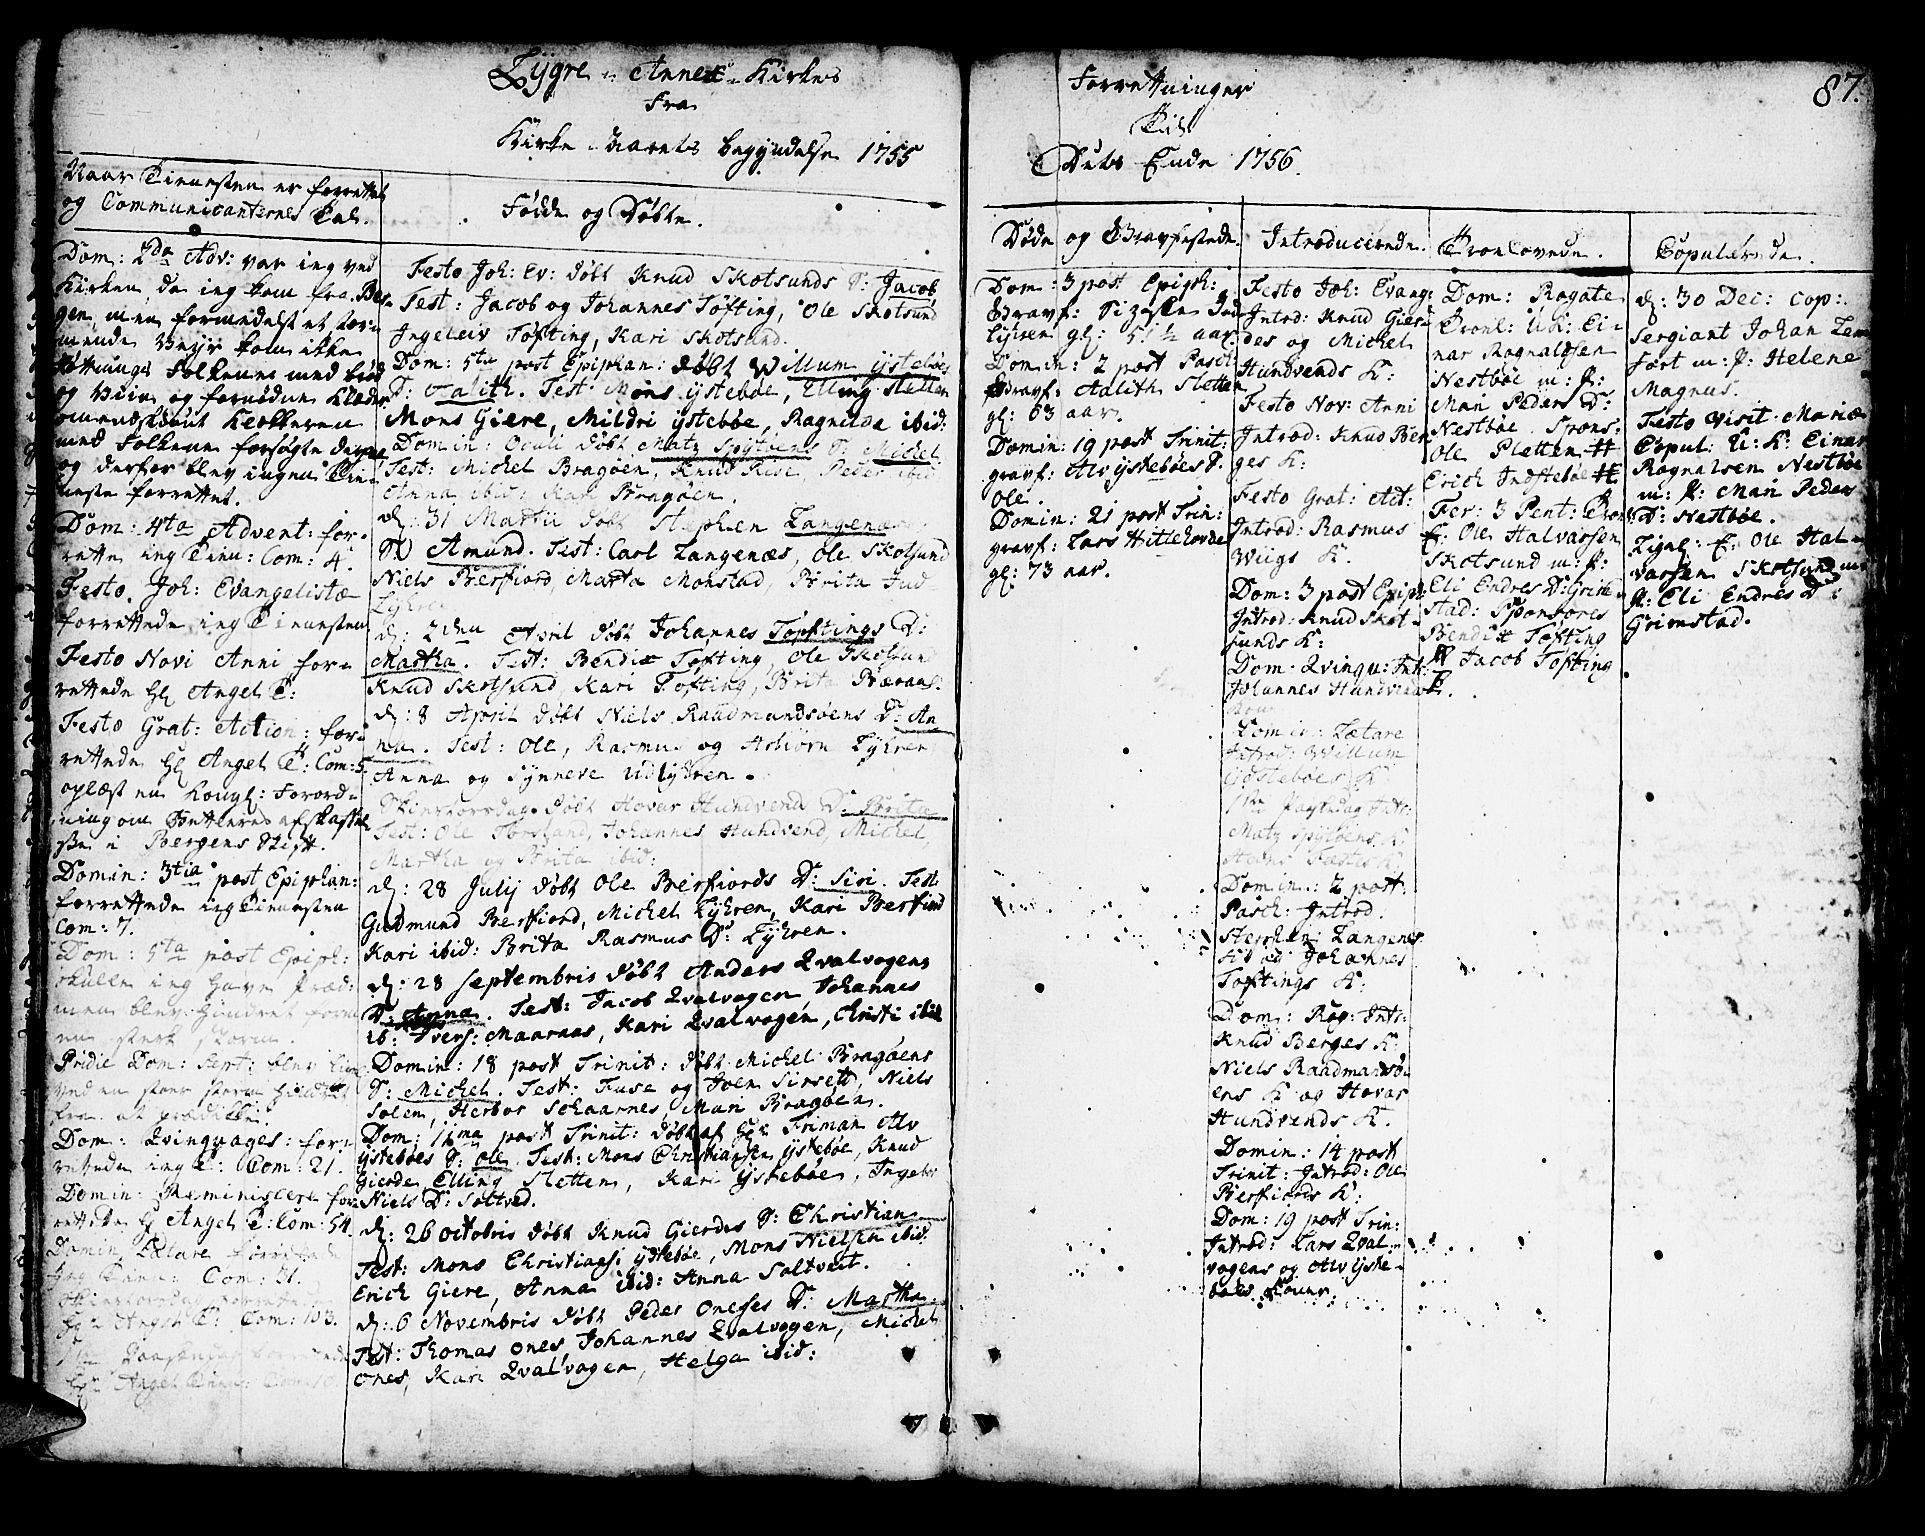 Lygre Annex Kirkes
Fra
Kirke Aarets begyndelse 1755
Naar Tienesten er forrettet
og Communicanternes Tal.
Fødde og Døbte.
Dom: 2da Adv: var ieg ved
Kirken, da ieg kom fra Ber-
gen, men formedelst et stor-
mende Veijr kom ikke
Folkene med brød
og Viin og fornødne Klæder
med Folkene forsøgte
og derfor blev ingen Tie-
neste forrettet.
Dom: 4ta Advent: for-
rettede ieg Tien: Com: 4.
Festo Joh: Evangelistæ
forrettede ieg Tienesten
Festo Novi Anni for-
rettede Hr Angel T:
Festo Grat: Action: for-
rettede Hr Angel T: Com: 5.
oplæst en Kongl: Forord-
ning om afskaffel-
se i Bergens Stift.
Domin: 3tia post Epiphan:
forrettede ieg Tienesten
Com: 7.
Dom: 5ta post Epiph:
skulle ieg have præd:
men blev hindret formed
en sterk storm.
Pridie Dom: Sept: blev
ved en stor storm hindret
fra at prædike.
Dom: Qvinquages: for-
rettede ieg T: Com: 21.
Domin: Reminiscere for-
rettede Hr Angel T: Com: 54.
Domin: Lætare forrettede
Jeg Tien: Com: 31.
Skiertorsdag forrettede
Hr Angel T: Com: 103.
Hr Angel Tien: Com:
Festo Joh: Ev: døbt Knud Skotsunds S: Jacob
Test: Jacob og Johannes Tøfting, Ole Skotsund
Ingeleiv Tøfting, Kari Skotsund.
Dom: 5ta post Epiphan: døbt Willum Ystebøes
D: Aalith. Test: Mons Ystebøe, Elling Sletten
Mons Giere, Mildri Ystebøe, Ragnilda ibid:
Domin: Oculi døbt Matz Spytøens S: Michel
Test: Michel Bragøen, Knud, Peder ibid
Anna ibid: Kari Bragøen.
d: 31 Martii døbt Stephen Langenæs
S: Amund. Test: Carl Langenæs, Ole Skotsund
Niels Berfiord, Marta Mokstad, Brita Ind-
Lyhren
d: 2den April døbt Johannes Tøftings D:
Martha. Test: Bendix Tøfting, Ole Skotsund
Knud Skotsund, Kari Tøfting, Brita
d: 8 April døbt Niels Raadmundsøens D: An-
na. Test: Ole, Rasmus og Asbiørn Lyhren
Anna og Synneve Udlyhren.
Skiertorsdag døbt Hovar Hundvend D: Brita
Test: Ole Torsland, Johannes Hundvend, Michel,
Martha og Brita ibid:
d: 28 Julij døbt Ole Berfiords D: Siri. Test:
Gudmund Berfiord, Michel Lyhren, Kari Berfiord
Kari ibid: Brita Rasmus D: Lyhren.
d: 28 Septembris døbt Anders Qvalvogens
D: Anna. Test: Jacob Qvalvogen, Johannes
ib: Maaraas, Kari Qvalvogen, Christi ibid
Domin: 18 post Trinit: døbt Michel Bragøens
S: Michel. Test: Tuse og Joen Sirsett, Niels
Solen, Herbor Schaarnes, Mari Bragøen.
Dom: 11ma post Trinit: døbt af Hr Friman Alv
Ystebøes S: Ole. Test: Mons Christiansen Ystebøe, Knud
Gierde, Elling Sletten, Kari Ystebøe, Ingebr
Niels D: Soltved.
d: 26 Octobris døbt Knud Gierdes S: Christian
Test: Mons Christians: Ystebøe, Mons Nielsen ibid:
Erich Giere, Anna ibid: Anna Soltveit.
d: 6 Novembris døbt Peder Oneses D: Martha.
Test: Thomas Ones, Johannes Qvalvogen, Michel
Ones, Kari Qvalvogen, Helga ibid:
Forrettninger
Til
Dets Ende 1756.
87.
Døde og Gravfestede.
Introducerede.
Troelovede.
Copulerede.
Dom: 3 post Epiph:
Gravf: Ind
Lyhren gl: 5 1/2 aar.
Domin: 2 post Pasch:
Gravf: Aalith Sletten
gl: 63 aar.
Domin: 19 post Trinit:
gravf: Alv Ystebøes S.
Ole.
Domin: 21 post Trin:
gravf: Lars Hillehovde
gl: 73 aar.
Festo Joh: Evang:
Introd: Knud Gier-
des og Michel
Hundvends K:
Festo Nov: Anni
Introd: Knud Ber-
ges K:
Festo Grat: Act:
Introd: Rasmus
Wiigs K:
Dom: 3 post Epiph:
Introd: Knud Skot-
sunds K:
Dom: Qvinqu: Int:
Johannes Hundvends
Kone
Domin: Lætare
Introd: Willum
Ystebøes K:
Matz Spytøens K:
Domin: 2 post
Pasch: Introd.
Stephen Langenes
Johannes
Tøftings K:
Dom: Rog: Intr:
Knud Berges K:
Niels Raadmandsø-
ens K og Hovar
Hundvends K:
Domin: 14 post
Trinit: Introd: Ole
Berfiords K:
Dom: 19 post Trin:
Introd: Lars Qval-
vogens og Alv Yste-
bøes Koner.
Dom: Rogate
Troel: U: K: Ei-
nar Ragnaldsen
Nestbøe m: P:
Mari Peders D:
Nestbøe. Spons:
Ole Sletten
Erich Indstebøe
Fer: 3 Pent: Troel
E: Ole Halvarsen
Skotsund m: P:
Eli Endres D: Grim-
stad: Sponsores
Bendix Tøfting
Jacob Tøfting
d: 30 Dec: Cop:
Sergiant Johan Lem-
fort m: P: Helene
Magnus.
Festo Visit Mariæ
Copul: U: K: Einar
Ragnalsen Nestbøe
m: P: Mari Peders
D: Nestbøe.
Ligel: E: Ole Hal-
varsen Skotsund m:
P: Eli Endres D:
Grimstad.